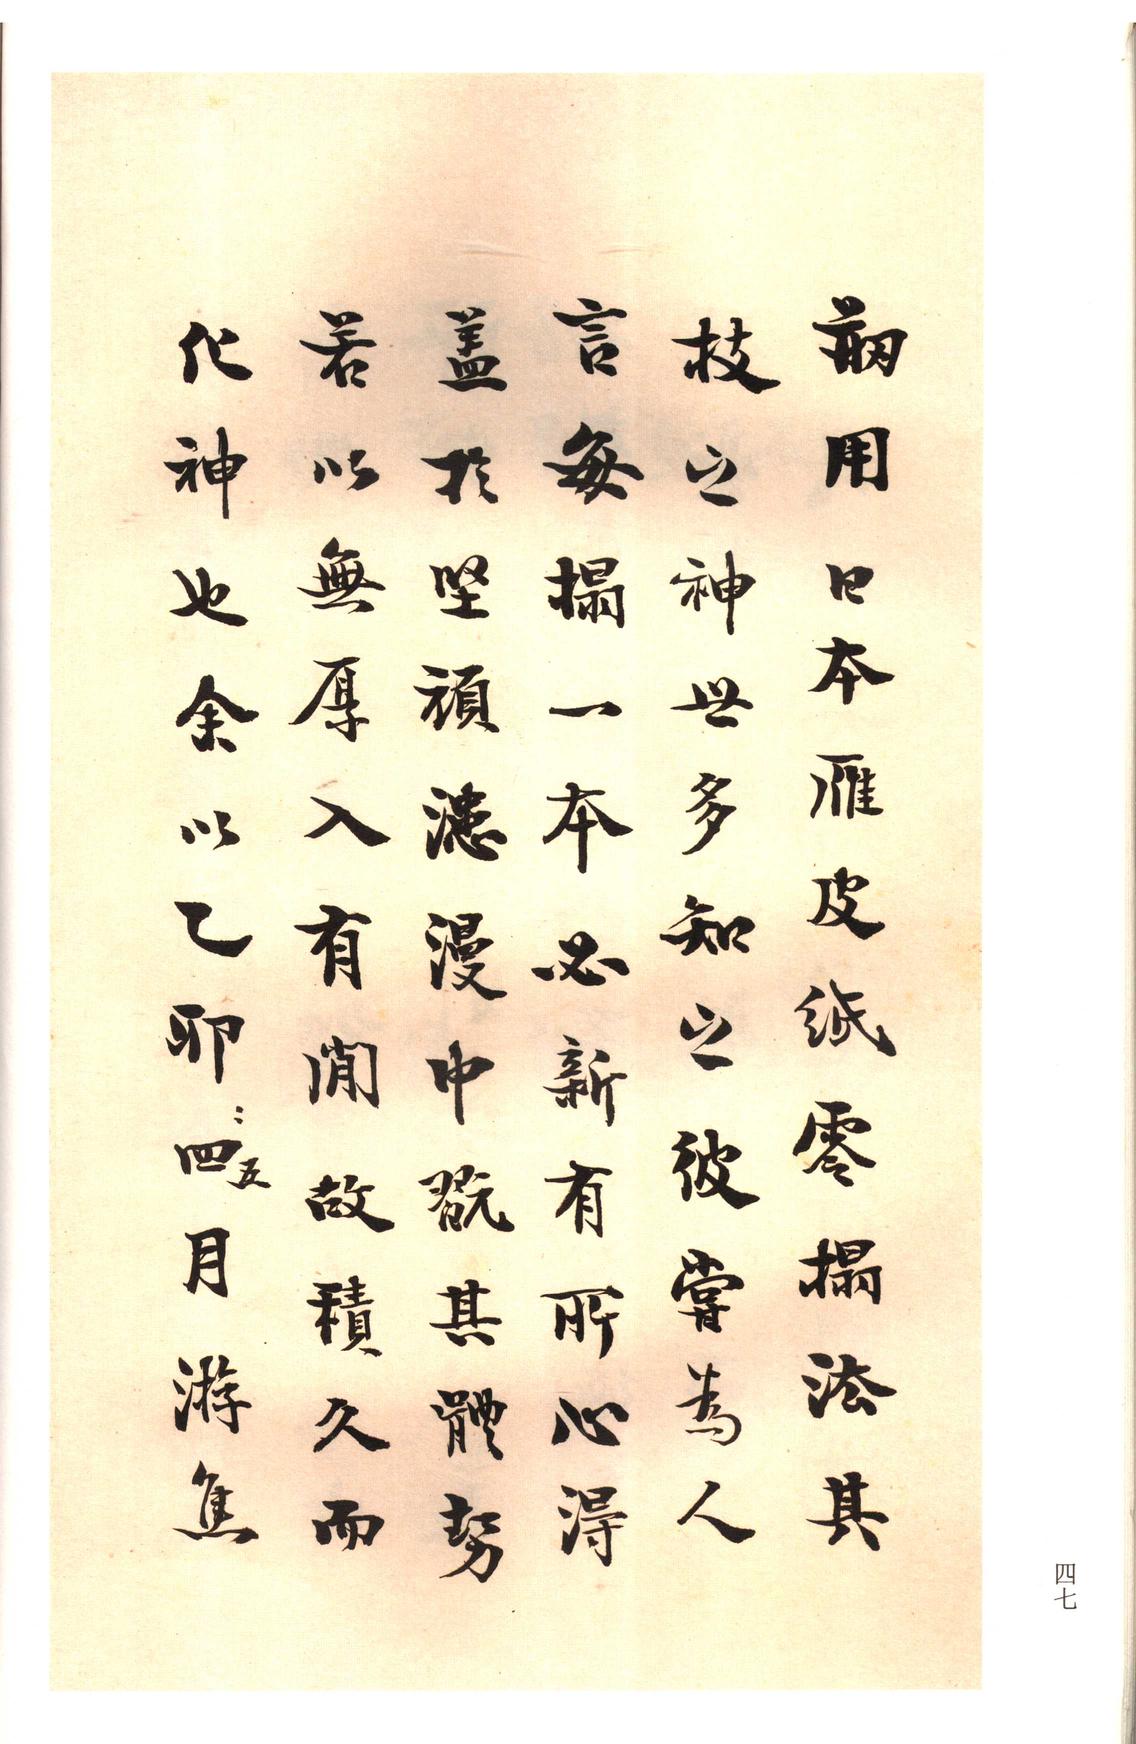 剏用日本雁皮紙零搨法其
技之神世多知之彼嘗為人
言每搨一本必新有所心得
盖於堅頑漶漫中翫其體勢
若以無厚入有閒故積久而
化神也余以乙卯四五月游焦
四七